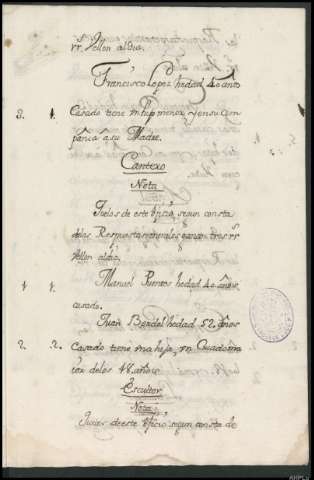 rr. Vellon al dia.
Francisco Lopez hedad 40 años
3. 1. Casado tiene un hijo menor, y en su Com
pañia à su Madre.
Cantero
Nota
Que los de este Oficio, segun consta
de las Respuestas generales ganan tres rr.
Vellon al dia.
1. 1. Manuel Puertas hedad 40 años,
casado.
Juan Bordel hedad 52. años
2. 2. Casado tiene una hija, un
de los 48. años
Escultor
Nota
Que los de este Oficio, segun consta de